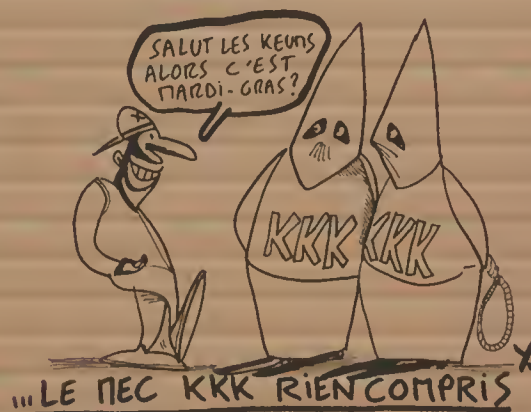 SALUT LES KEUMS
ALORS C'EST
MARDI-GRAS?
KKK
KKK
...LE MEC KKK RIEN COMPRIS